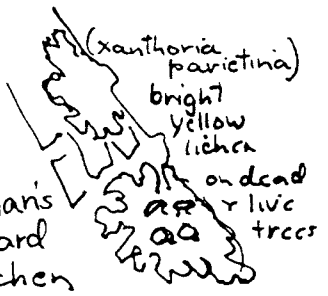 (xanthoria
parietina)
bright
yellow
lichen
on dead
+ live
trees
an's
ard
chen